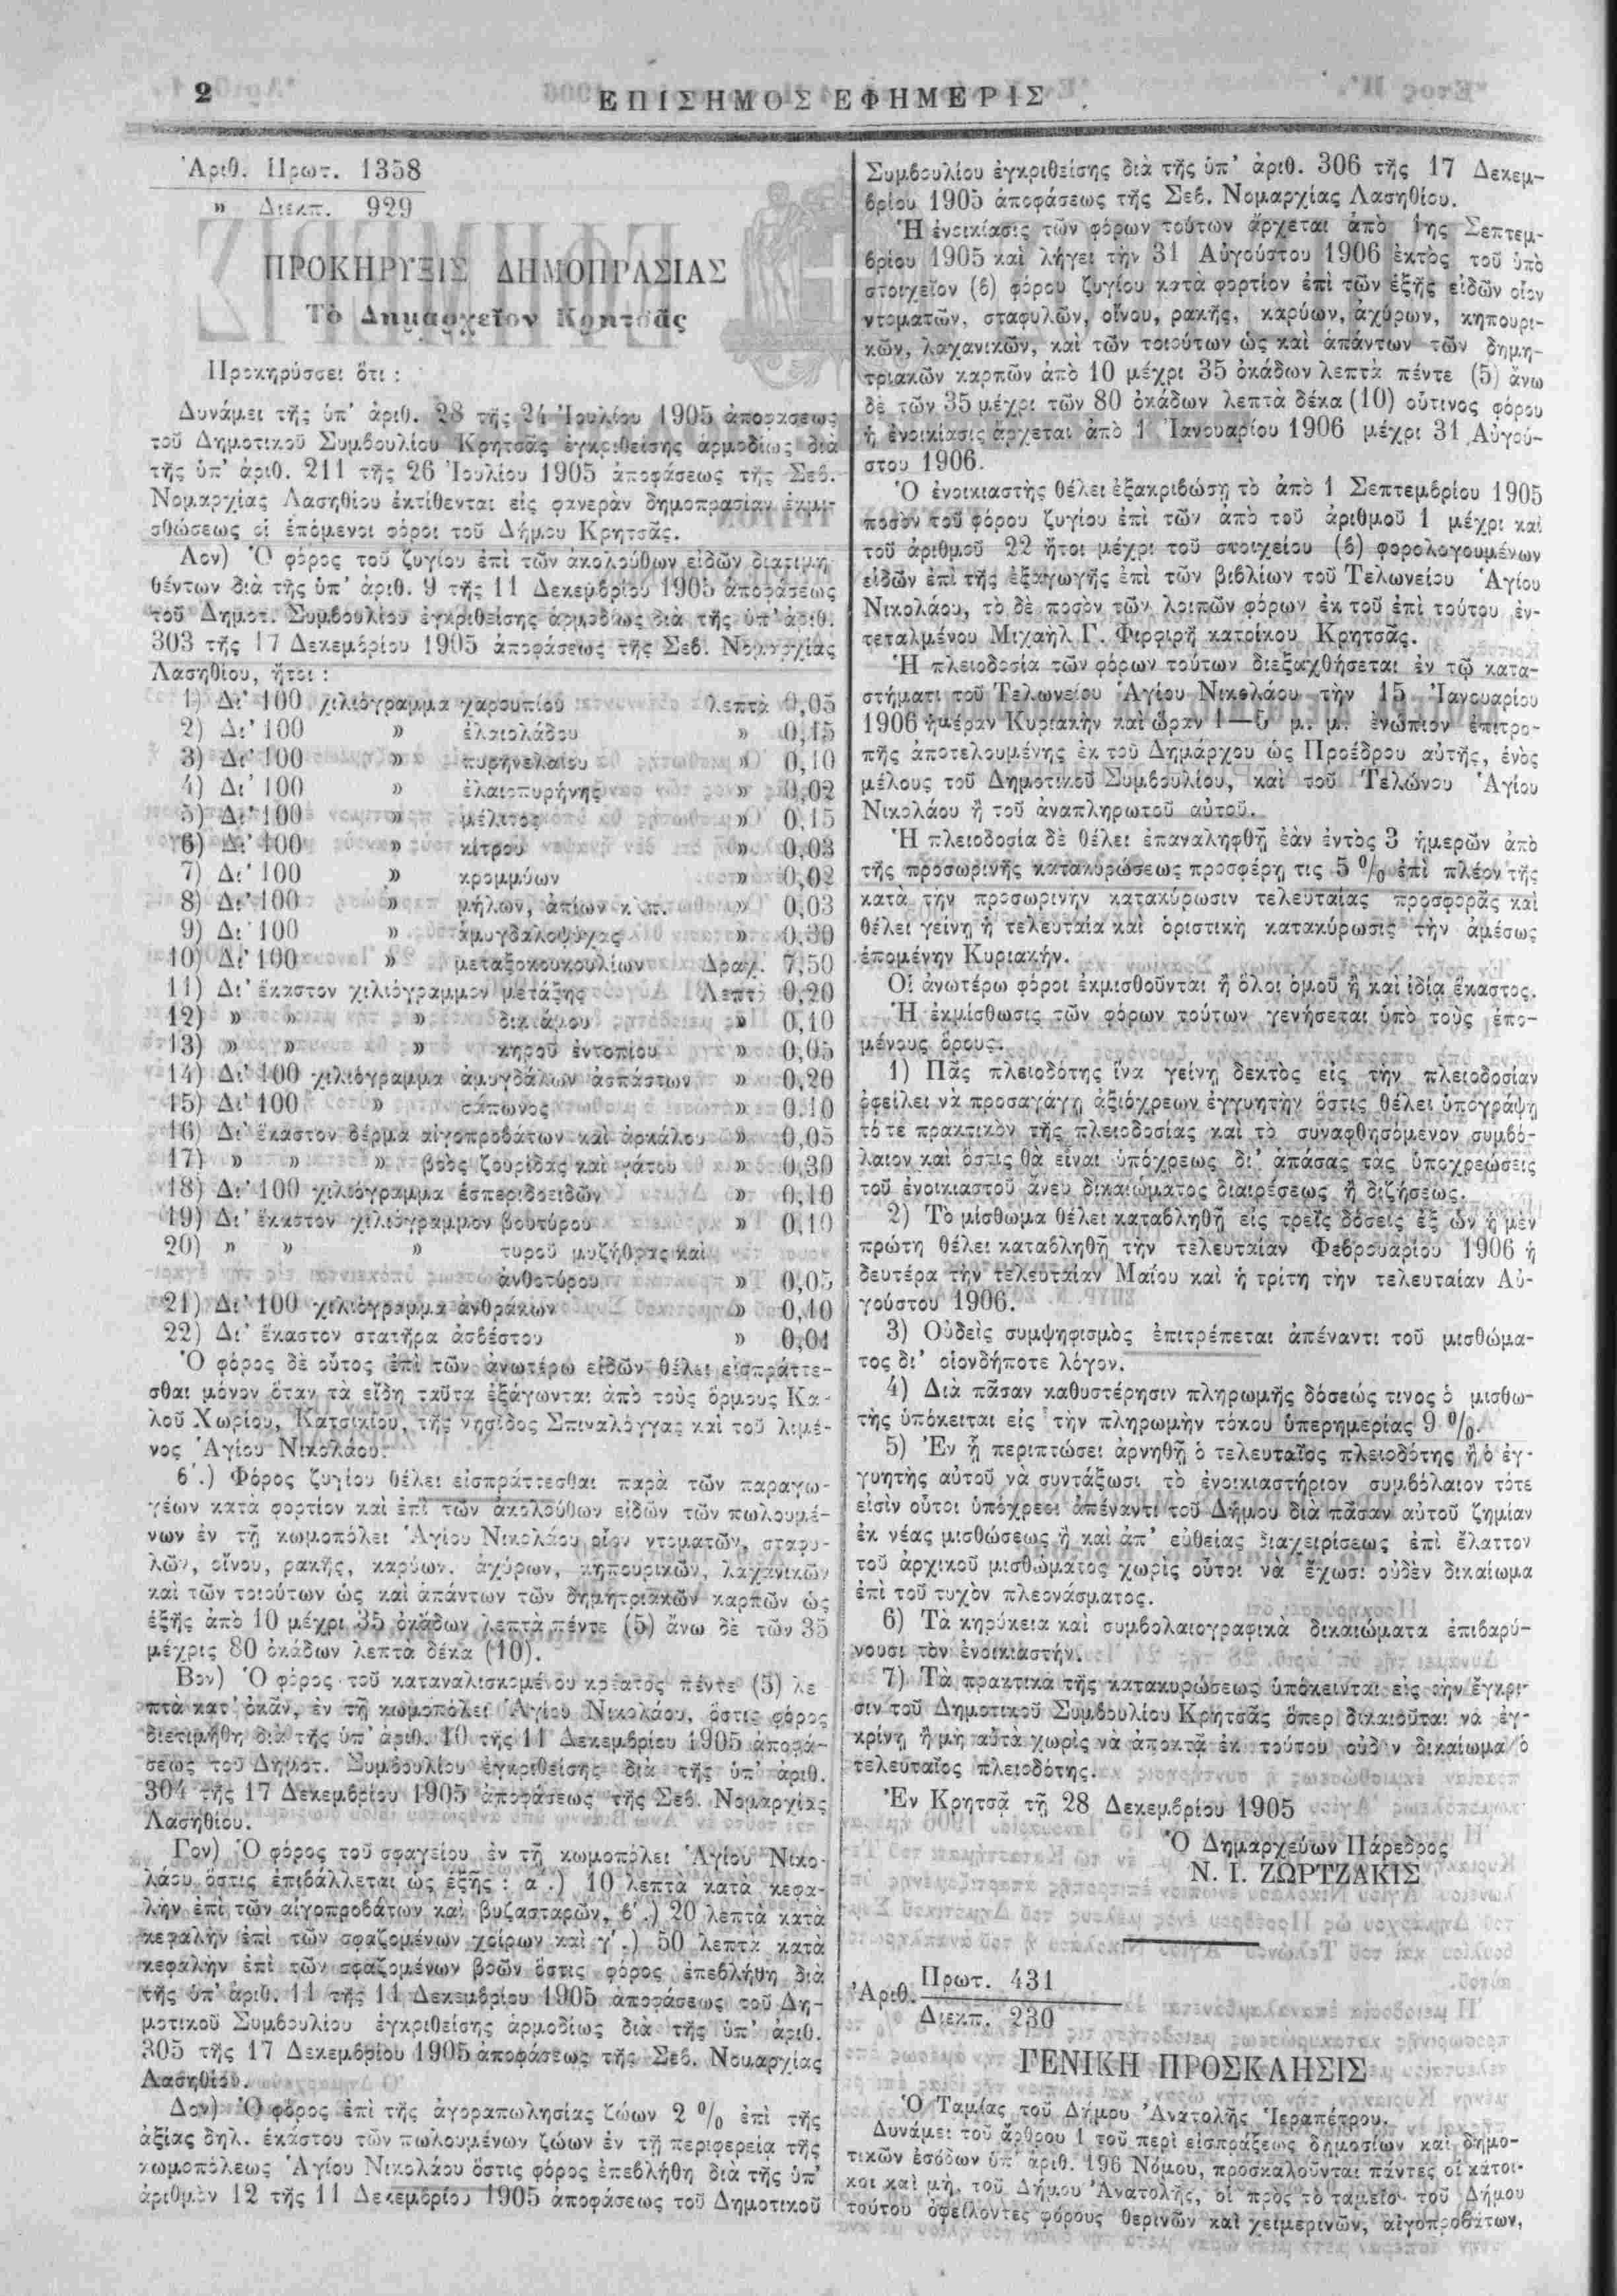 2
ΕΠΙΣΗΜΟΣ ΕΦΗΜΕΡΙΣ
Ἀριθ. Πρωτ. 1358
» Διεκπ. 929
ΠΡΟΚΗΡΥΞΙΣ ΔΗΜΟΠΡΑΣΙΑΣ
Τὸ Δημαρχεῖον Κρητσᾶς
Προκηρύσσει ὅτι :
Δυνάμει τῆς ὑπ' ἀριθ. 28 τῆς 24 Ἰουλίου 1905 ἀποφάσεως
τοῦ Δημοτικοῦ Συμβουλίου Κρητσᾶς ἐγκριθείσης ἁρμοδίως διὰ
τῆς ὑπ' ἀριθ. 211 τῆς 26 Ἰουλίου 1905 ἀποφάσεως τῆς Σεβ.
Νομαρχίας Λασηθίου ἐκτίθενται εἰς φανερὰν δημοπρασίαν ἐκμι-
σθώσεως οἱ ἑπόμενοι φόροι τοῦ Δήμου Κρητσᾶς.
Αον) Ὁ φόρος τοῦ ζυγίου ἐπὶ τῶν ἀκολούθων εἰδῶν διατιμη
θέντων διὰ τῆς ὑπ' ἀριθ. 9 τῆς 11 Δεκεμβρίου 1905 ἀποφάσεως
τοῦ Δημοτ. Συμβουλίου ἐγκριθείσης ἁρμοδίως διὰ τῆς ὑπ' ἀριθ.
303 τῆς 17 Δεκεμβρίου 1905 ἀποφάσεως τῆς Σεβ. Νομαρχίας
Λασηθίου, ἤτοι :
1) Δι' 100 χιλιόγραμμα χαρουπίου λεπτὰ 0,05
2) Δι' 100 » ἐλαιολάδου » 0,15
3) Δι' 100 » πυρηνελαίου » 0,10
4) Δι' 100 » ἐλαιοπυρήνης » 0,02
5) Δι' 100 » μέλιτος » 0,15
6) Δι' 100 » κίτρου » 0,03
7) Δι' 100 » κρομμύων » 0,02
8) Δι' 100 » μήλων, ἀπίων κ.λ.π. » 0,03
9) Δι' 100 » ἀμυγδαλοψύχας » 0,30
10) Δι' 100 » μεταξοκουκουλίων Δραχ. 7,50
11) Δι' ἕκαστον χιλιόγραμμον μετάξης Λεπτὰ 0,20
12) » » » δικτάμου » 0,10
13) » » » κηροῦ ἐντοπίου » 0,05
14) Δι' 100 χιλιόγραμμα ἀμυγδάλων ἀσπάστων » 0,20
15) Δι' 100 » σάπωνος » 0,10
16) Δι' ἕκαστον δέρμα αἰγοπροβάτων καὶ ἀρκάλου » 0,05
17) » » » βοὸς ζουρίδας καὶ γάτου » 0,30
18) Δι' 100 χιλιόγραμμα ἑσπεριδοειδῶν » 0,10
19) Δι' ἕκαστον χιλιόγραμμον βουτύρου » 0,10
20) » » » τυροῦ μυζήθρας καὶ
ἀνθοτύρου » 0,05
21) Δι' 100 χιλιόγραμμα ἀνθράκων » 0,10
22) Δι' ἕκαστον στατῆρα ἀσβέστου » 0,01
Ὁ φόρος δὲ οὗτος ἐπὶ τῶν ἀνωτέρω εἰδῶν θέλει εἰσπράττε-
σθαι μόνον ὅταν τὰ εἴδη ταῦτα ἐξάγωνται ἀπὸ τοὺς ὅρμους Κα-
λοῦ Χωρίου, Κατσικίου, τῆς νησίδος Σπιναλόγγας καὶ τοῦ λιμέ-
νος Ἁγίου Νικολάου.
β'.) Φόρος ζυγίου θέλει εἰσπράττεσθαι παρὰ τῶν παραγω-
γέων κατὰ φορτίον καὶ ἐπὶ τῶν ἀκολούθων εἰδῶν τῶν πωλουμέ-
νων ἐν τῇ κωμοπόλει Ἁγίου Νικολάου οἷον ντοματῶν, σταφυ-
λῶν, οἴνου, ρακῆς, καρύων, ἀχύρων, κηπουρικῶν, λαχανικῶν
καὶ τῶν τοιούτων ὡς καὶ ἁπάντων τῶν δημητριακῶν καρπῶν ὡς
ἑξῆς ἀπὸ 10 μέχρι 35 ὀκάδων λεπτὰ πέντε (5) ἄνω δὲ τῶν 35
μέχρις 80 ὀκάδων λεπτὰ δέκα (10).
Βον) Ὁ φόρος τοῦ καταναλισκομένου κρέατος πέντε (5) λε
πτὰ κατ' ὀκᾶν, ἐν τῇ κωμοπόλει Ἁγίου Νικολάου, ὅστις φόρος
διετιμήθη διὰ τῆς ὑπ' ἀριθ. 10 τῆς 11 Δεκεμβρίου 1905 ἀποφά-
σεως τοῦ Δημοτ. Συμβουλίου ἐγκριθείσης διὰ τῆς ὑπ' ἀριθ.
304 τῆς 17 Δεκεμβρίου 1905 ἀποφάσεως τῆς Σεβ. Νομαρχίας
Λασηθίου.
Γον) Ὁ φόρος τοῦ σφαγείου ἐν τῇ κωμοπόλει Ἁγίου Νικο-
λάου ὅστις ἐπιβάλλεται ὡς ἑξῆς : α'.) 10 λεπτὰ κατὰ κεφα-
λὴν ἐπὶ τῶν αἰγοπροβάτων καὶ βυζασταρῶν, β'.) 20 λεπτὰ κατὰ
κεφαλὴν ἐπὶ τῶν σφαζομένων χοίρων καὶ γ'.) 50 λεπτὰ κατὰ
κεφαλὴν ἐπὶ τῶν σφαζομένων βοῶν ὅστις φόρος ἐπεβλήθη διὰ
τῆς ὑπ' ἀριθ. 11 τῆς 11 Δεκεμβρίου 1905 ἀποφάσεως τοῦ Δη-
μοτικοῦ Συμβουλίου ἐγκριθείσης ἁρμοδίως διὰ τῆς ὑπ' ἀριθ.
305 τῆς 17 Δεκεμβρίου 1905 ἀποφάσεως τῆς Σεβ. Νομαρχίας
Λασηθίου.
Δον) Ὁ φόρος ἐπὶ τῆς ἀγοραπωλησίας ζώων 2 % ἐπὶ τῆς
ἀξίας δηλ. ἑκάστου τῶν πωλουμένων ζώων ἐν τῇ περιφερείᾳ τῆς
κωμοπόλεως Ἁγίου Νικολάου ὅστις φόρος ἐπεβλήθη διὰ τῆς ὑπ'
ἀριθμὸν 12 τῆς 11 Δεκεμβρίου 1905 ἀποφάσεως τοῦ Δημοτικοῦ
Συμβουλίου ἐγκριθείσης διὰ τῆς ὑπ' ἀριθ. 306 τῆς 17 Δεκεμ-
βρίου 1905 ἀποφάσεως τῆς Σεβ. Νομαρχίας Λασηθίου.
Ἡ ἐνοικίασις τῶν φόρων τούτων ἄρχεται ἀπὸ 1ης Σεπτεμ-
βρίου 1905 καὶ λήγει τὴν 31 Αὐγούστου 1906 ἐκτὸς τοῦ ὑπὸ
στοιχεῖον (β) φόρου ζυγίου κατὰ φορτίον ἐπὶ τῶν ἑξῆς εἰδῶν οἷον
ντοματῶν, σταφυλῶν, οἴνου, ρακῆς, καρύων, ἀχύρων, κηπουρι-
κῶν, λαχανικῶν, καὶ τῶν τοιούτων ὡς καὶ ἁπάντων τῶν δημη-
τριακῶν καρπῶν ἀπὸ 10 μέχρι 35 ὀκάδων λεπτὰ πέντε (5) ἄνω
δὲ τῶν 35 μέχρι τῶν 80 ὀκάδων λεπτὰ δέκα (10) οὗτινος φόρου
ἡ ἐνοικίασις ἄρχεται ἀπὸ 1 Ἰανουαρίου 1906 μέχρι 31 Αὐγού-
στου 1906.
Ὁ ἐνοικιαστὴς θέλει ἐξακριβώσῃ τὸ ἀπὸ 1 Σεπτεμβρίου 1905
ποσὸν τοῦ φόρου ζυγίου ἐπὶ τῶν ἀπὸ τοῦ ἀριθμοῦ 1 μέχρι καὶ
τοῦ ἀριθμοῦ 22 ἤτοι μέχρι τοῦ στοιχείου (β) φορολογουμένων
εἰδῶν ἐπὶ τῆς ἐξαγωγῆς ἐπὶ τῶν βιβλίων τοῦ Τελωνείου Ἁγίου
Νικολάου, τὸ δὲ ποσὸν τῶν λοιπῶν φόρων ἐκ τοῦ ἐπὶ τούτου ἐν-
τεταλμένου Μιχαὴλ Γ. Φιρφιρῆ κατοίκου Κρητσᾶς.
Ἡ πλειοδοσία τῶν φόρων τούτων διεξαχθήσεται ἐν τῷ κατα-
στήματι τοῦ Τελωνείου Ἁγίου Νικολάου τὴν 15 Ἰανουαρίου
1906 ἡμέραν Κυριακὴν καὶ ὥραν 1—5 μ. μ. ἐνώπιον ἐπιτρο-
πῆς ἀποτελουμένης ἐκ τοῦ Δημάρχου ὡς Προέδρου αὐτῆς, ἑνὸς
μέλους τοῦ Δημοτικοῦ Συμβουλίου, καὶ τοῦ Τελώνου Ἁγίου
Νικολάου ἢ τοῦ ἀναπληρωτοῦ αὐτοῦ.
Ἡ πλειοδοσία δὲ θέλει ἐπαναληφθῇ ἐὰν ἐντὸς 3 ἡμερῶν ἀπὸ
τῆς προσωρινῆς κατακυρώσεως προσφέρῃ τις 5 % ἐπὶ πλέον τῆς
κατὰ τὴν προσωρινὴν κατακύρωσιν τελευταίας προσφορᾶς καὶ
θέλει γείνῃ ἡ τελευταία καὶ ὁριστικὴ κατακύρωσις τὴν ἀμέσως
ἑπομένην Κυριακήν.
Οἱ ἀνωτέρω φόροι ἐκμισθοῦνται ἢ ὅλοι ὁμοῦ ἢ καὶ ἰδίᾳ ἕκαστος.
Ἡ ἐκμίσθωσις τῶν φόρων τούτων γενήσεται ὑπὸ τοὺς ἑπο-
μένους ὅρους.
1) Πᾶς πλειοδότης ἵνα γείνῃ δεκτὸς εἰς τὴν πλειοδοσίαν
ὀφείλει νὰ προσαγάγῃ ἀξιόχρεων ἐγγυητὴν ὅστις θέλει ὑπογράψῃ
τό τε πρακτικὸν τῆς πλειοδοσίας καὶ τὸ συναφθησόμενον συμβό-
λαιον καὶ ὅστις θὰ εἶναι ὑπόχρεως δι' ἁπάσας τὰς ὑποχρεώσεις
τοῦ ἐνοικιαστοῦ ἄνευ δικαιώματος διαιρέσεως ἢ διζήσεως.
2) Τὸ μίσθωμα θέλει καταβληθῇ εἰς τρεῖς δόσεις ἐξ ὧν ἡ μὲν
πρώτη θέλει καταβληθῇ τὴν τελευταίαν Φεβρουαρίου 1906 ἡ
δευτέρα τὴν τελευταίαν Μαΐου καὶ ἡ τρίτη τὴν τελευταίαν Αὐ-
γούστου 1906.
3) Οὐδεὶς συμψηφισμὸς ἐπιτρέπεται ἀπέναντι τοῦ μισθώμα-
τος δι' οἱονδήποτε λόγον.
4) Διὰ πᾶσαν καθυστέρησιν πληρωμῆς δόσεώς τινος ὁ μισθω-
τὴς ὑπόκειται εἰς τὴν πληρωμὴν τόκου ὑπερημερίας 9 %.
5) Ἐν ᾗ περιπτώσει ἀρνηθῇ ὁ τελευταῖος πλειοδότης ἢ ὁ ἐγ-
γυητὴς αὐτοῦ νὰ συντάξωσι τὸ ἐνοικιαστήριον συμβόλαιον τότε
εἰσὶν οὗτοι ὑπόχρεοι ἀπέναντι τοῦ Δήμου διὰ πᾶσαν αὐτοῦ ζημίαν
ἐκ νέας μισθώσεως ἢ καὶ ἀπ' εὐθείας διαχειρίσεως ἐπὶ ἔλαττον
τοῦ ἀρχικοῦ μισθώματος χωρὶς οὗτοι νὰ ἔχωσι οὐδὲν δικαίωμα
ἐπὶ τοῦ τυχὸν πλεονάσματος.
6) Τὰ κηρύκεια καὶ συμβολαιογραφικὰ δικαιώματα ἐπιβαρύ-
νουσι τὸν ἐνοικιαστήν.
7) Τὰ πρακτικὰ τῆς κατακυρώσεως ὑπόκεινται εἰς τὴν ἔγκρι-
σιν τοῦ Δημοτικοῦ Συμβουλίου Κρητσᾶς ὅπερ δικαιοῦται νὰ ἐγ-
κρίνῃ ἢ μὴ αὐτὰ χωρὶς νὰ ἀποκτᾷ ἐκ τούτου οὐδ ν δικαίωμα ὁ
τελευταῖος πλειοδότης.
Ἐν Κρητσᾷ τῇ 28 Δεκεμβρίου 1905
Ὁ Δημαρχεύων Πάρεδρος
Ν. Ι. ΖΩΡΤΖΑΚΙΣ
Ἀριθ. Πρωτ. 431
Διεκπ. 230
ΓΕΝΙΚΗ ΠΡΟΣΚΛΗΣΙΣ
Ὁ Ταμίας τοῦ Δήμου Ἀνατολῆς Ἱεραπέτρου.
Δυνάμει τοῦ ἄρθρου 1 τοῦ περὶ εἰσπράξεως δημοσίων καὶ δημο-
τικῶν ἐσόδων ὑπ' ἀριθ. 196 Νόμου, προσκαλοῦνται πάντες οἱ κάτοι-
κοι καὶ μὴ, τοῦ Δήμου Ἀνατολῆς, οἱ πρὸς τὸ ταμεῖον τοῦ Δήμου
τούτου ὀφείλοντες φόρους θερινῶν καὶ χειμερινῶν, αἰγοπροβάτων,